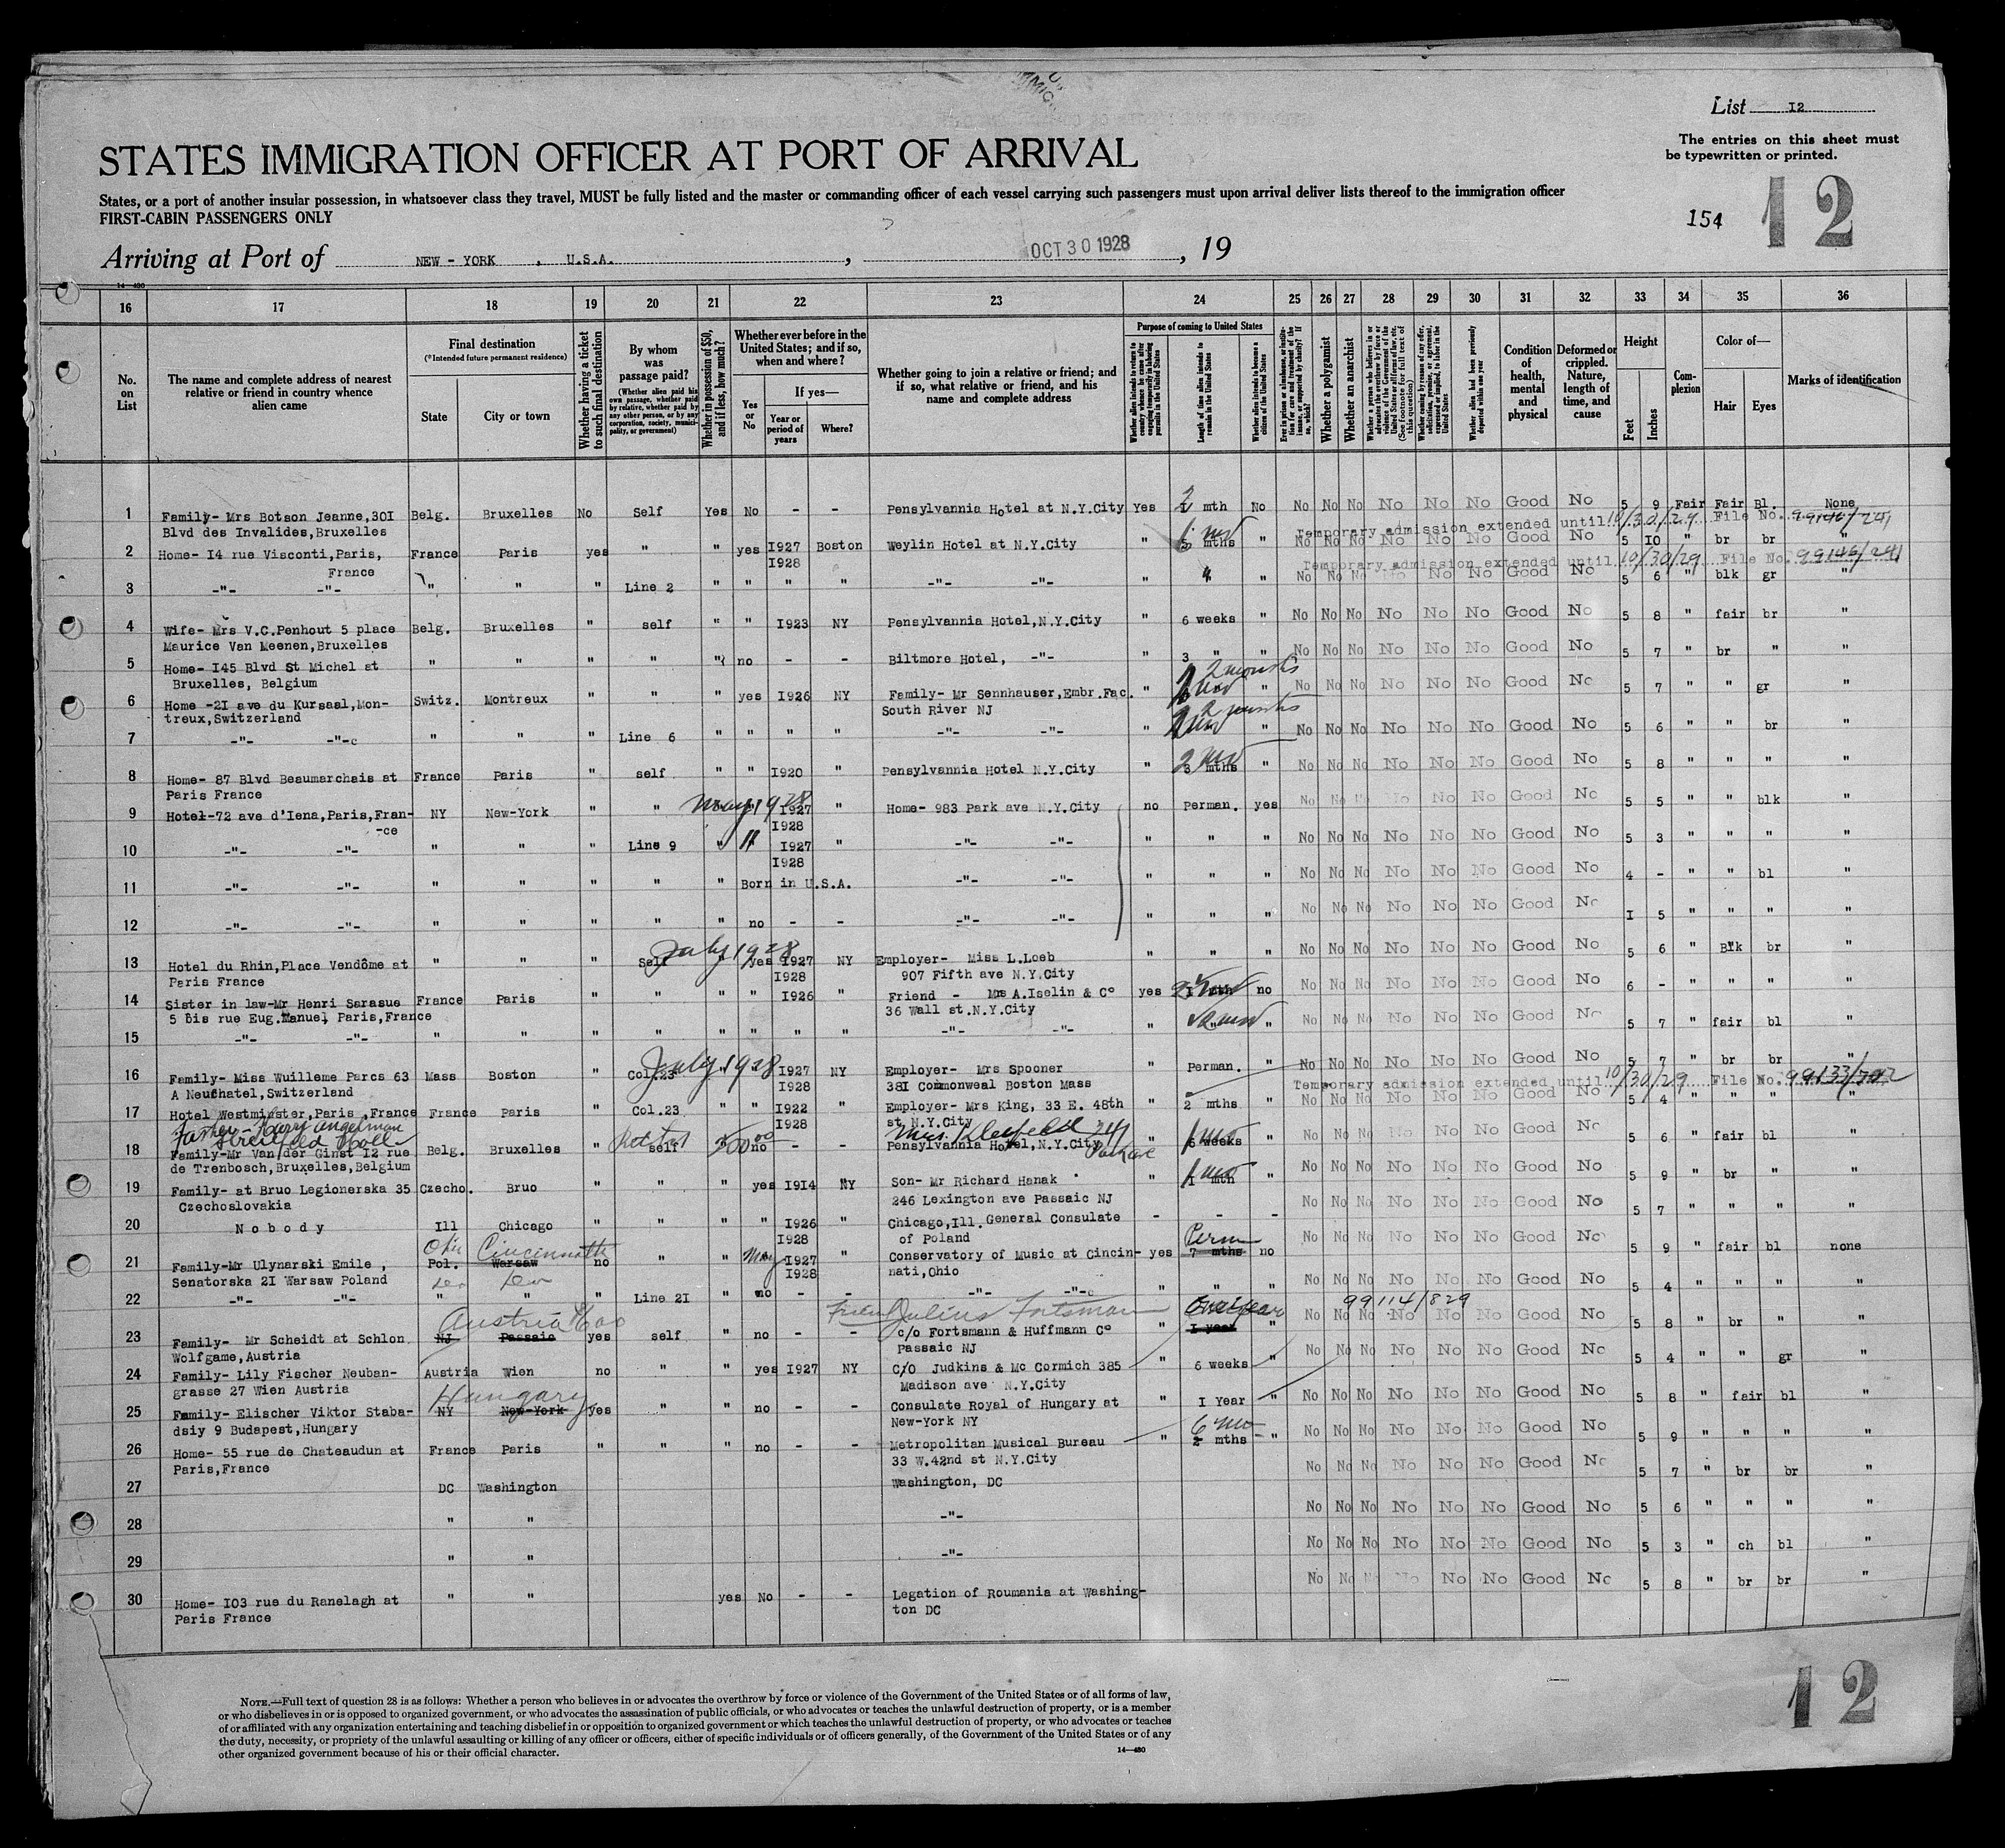 List I2
The entries on this sheet must
be typewritten or printed.
STATES IMMIGRATION OFFICER AT PORT OF ARRIVAL
States, or a port of another insular possession, in whatsoever class they travel, MUST be fully listed and the master or commanding officer of each vessel carrying such passengers must upon arrival deliver lists thereof to the immigration officer
FIRST-CABIN PASSENGERS ONLY
154 12
Arriving at Port of NEW - YORK , U.S.A. , OCT 30 1928 , 19
14-480
16 17 18 19 20 21 22 23 24 25 26 27 28 29 30 31 32 33 34 35 36
No. on List
The name and complete address of nearest relative or friend in country whence alien came
Final destination
(*Intended future permanent residence)
State
City or town
Whether having a ticket to such final destination
By whom was passage paid?
(Whether alien paid his own passage, whether paid by relative, whether paid by any other person, or by any corporation, society, municipality, or government)
Whether in possession of $50, and if less, how much?
Whether ever before in the United States; and if so, when and where?
Yes or No
If yes—
Year or period of years
Where?
Whether going to join a relative or friend; and if so, what relative or friend, and his name and complete address
Purpose of coming to United States
Length of time alien intends to remain in the United States
Whether alien intends to become a citizen of the United States
Whether a polygamist
Whether an anarchist
Whether alien had been previously deported within one year
Condition of health, mental and physical
Deformed or crippled. Nature, length of time, and cause
Height
Feet
Inches
Complexion
Color of—
Hair
Eyes
Marks of identification
1 Family- Mrs Botson Jeanne,30I Belg. Bruxelles No Self Yes No - - Pensylvannia Hotel at N.Y.City Yes 2 mth No No No No No No No Good No 5 9 Fair Fair Bl. None
Blvd des Invalides,Bruxelles
Temporary admission extended until 10/30/29 File No. 99146/241
2 Home- I4 rue Visconti,Paris, France Paris yes " " yes I927 Boston Weylin Hotel at N.Y.City " mths " No No No No No No Good No 5 IO " br br "
France I928
Temporary admission extended until 10/30/29 File No. 99146/241
3 -"- -"- " " " Line 2 " " " " -"- -"- " " No No No No No No Good No 5 6 " blk gr "
4 Wife- Mrs V.C.Penhout 5 place Belg. Bruxelles " self " " I923 NY Pensylvannia Hotel,N.Y.City " 6 weeks " No No No No No No Good No 5 8 " fair br "
Maurice Van Meenen,Bruxelles
5 Home- I45 Blvd St Michel at " " " " " no - - Biltmore Hotel, -"- " 3 " " No No No No No No Good No 5 7 " br " "
Bruxelles, Belgium
2 months
6 Home -2I ave du Kursaal,Mon- Switz. Montreux " " " yes I926 NY Family- Mr Sennhauser,Embr.Fac. " " No No No No No No Good No 5 7 " " gr "
treux,Switzerland South River NJ
2 months
7 -"- -"-c " " " Line 6 " " " " -"- -"- " " No No No No No No Good No 5 6 " " br "
8 Home- 87 Blvd Beaumarchais at France Paris " self " " I920 " Pensylvannia Hotel N.Y.City " 3 mths " No No No No No No Good No 5 8 " " " "
Paris France
May 1928
9 Hotel-72 ave d'Iena,Paris,Fran- NY New-York " " I927 " Home- 983 Park ave N.Y.City no Perman. yes No No No No No No Good No 5 5 " " blk "
-ce I928
10 -"- -"- " " " Line 9 " " I927 " -"- -"- " " " No No No No No No Good No 5 3 " " " "
I928
11 -"- -"- " " " " " Born in U.S.A. -"- -"- " " " No No No No No No Good No 4 - " " bl "
12 -"- -"- " " " " " no - - -"- -"- " " " No No No No No No Good No I 5 " " " "
July 1928
13 Hotel du Rhin,Place Vendôme at " " " Self yes I927 NY Employer- Miss L.Loeb " " " No No No No No No Good No 5 6 " Blk br "
Paris France I928 907 Fifth ave N.Y.City
14 Sister in law-Mr Henri Sarasue France Paris " " " " I926 " Friend - Mrs A.Iselin & C° yes I mth no No No No No No No Good No 6 - " " " "
5 bis rue Eug.Manuel, Paris,France 36 Wall st.N.Y.City
15 -"- -"- " " " " " " " " -"- -"- " " " No No No No No No Good No 5 7 " fair bl "
July 1928
16 Family- Miss Wuilleme Parcs 63 Mass Boston " Col.23 I927 NY Employer- Mrs Spooner " Perman. " No No No No No No Good No 5 7 " br br "
A Neufhatel,Switzerland I928 38I Commonweal Boston Mass
Temporary admission extended until 10/30/29 File No. 99133/702
17 Hotel Westminster,Paris,France France Paris " Col.23 " " I922 " Employer- Mrs King, 33 E. 48th " 2 mths " No No No No No No Good No 5 4 " " " "
I928 st N.Y.City
Father - Harry
18 Family-Mr Van der Ginst I2 rue Belg. Bruxelles " self 500 no - - Pensylvannia Hotel,N.Y.City " 6 weeks " No No No No No No Good No 5 6 " fair bl "
de Trenbosch,Bruxelles,Belgium
19 Family- at Bruo Legionerska 35 Czecho. Bruo " " " yes I9I4 NY Son- Mr Richard Hanak " I mth " No No No No No No Good No 5 9 " br " "
Czechoslovakia 246 Lexington ave Passaic NJ
20 N o b o d y Ill Chicago " " " " I926 " Chicago,Ill. General Consulate - - - No No No No No No Good No 5 7 " " " "
I928 of Poland
Ohio Cincinnati Perm
21 Family-Mr Ulynarski Emile , Pol. Warsaw no " " May I927 " Conservatory of Music at Cincin- yes 7 mths no No No No No No No Good No 5 9 " fair bl none
Senatorska 2I Warsaw Poland I928 nati,Ohio
22 -"- -"- " " " Line 2I " no - - -"- -"-c " " " No No No No No No Good No 5 4 " " " "
Austria Julius Fortsman One year 99114/829
23 Family- Mr Scheidt at Schlon NJ Passaic yes self " no - - c/o Fortsmann & Huffmann C° " I year " No No No No No No Good No 5 8 " br " "
Wolfgame,Austria Passaic NJ
24 Family- Lily Fischer Neuban- Austria Wien no " " yes I927 NY C/O Judkins & Mc Cormich 385 " 6 weeks " No No No No No No Good No 5 4 " " gr "
grasse 27 Wien Austria Madison ave N.Y.City
Hungary
25 Family- Elischer Viktor Staba- NY New-York yes " " no - - Consulate Royal of Hungary at " I Year " No No No No No No Good No 5 8 " fair bl "
dsiy 9 Budapest,Hungary New-York NY
6 mo
26 Home- 55 rue de Chateaudun at France Paris " " " no - - Metropolitan Musical Bureau " 2 mths " No No No No No No Good No 5 9 " " " "
Paris,France 33 W.42nd st N.Y.City
27 DC Washington Washington, DC No No No No No No Good No 5 7 " br br "
28 " " -"- No No No No No No Good No 5 6 " " " "
29 " " -"- No No No No No No Good No 5 3 " ch bl "
30 Home- I03 rue du Ranelagh at " " yes No - - Legation of Roumania at Washing- No No No No No No Good No 5 8 " br br "
Paris France ton DC
12
NOTE.—Full text of question 28 is as follows: Whether a person who believes in or advocates the overthrow by force or violence of the Government of the United States or of all forms of law,
or who disbelieves in or is opposed to organized government, or who advocates the assassination of public officials, or who advocates or teaches the unlawful destruction of property, or is a member
of or affiliated with any organization entertaining and teaching disbelief in or opposition to organized government or which teaches the unlawful destruction of property, or who advocates or teaches
the duty, necessity, or propriety of the unlawful assaulting or killing of any officer or officers, either of specific individuals or of officers generally, of the Government of the United States or of any
other organized government because of his or their official character.
14-480